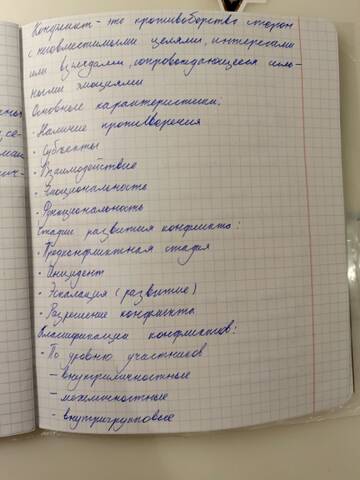 Конфликт - это противоборство сторон
с несовместимыми целями, интересами
или взглядами, сопровождающееся силь-
ными эмоциями
Основные характеристики:
• Наличие противоречия
• Субъекты
• Взаимодействие
• Эмоциональность
• Функциональность
Стадии развития конфликта:
• Предконфликтная стадия
• Инцидент
• Эскалация (развитие)
• Разрешение конфликта
Классификации конфликтов:
• По уровню участников
– внутриличностные
– межличностные
– внутригрупповые